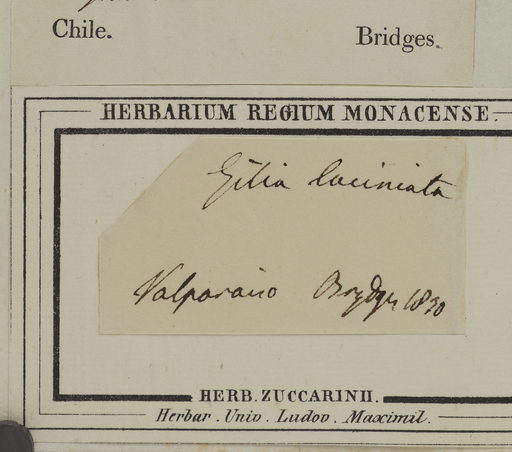 Chile. Bridges.
HERBARIUM REGIUM MONACENSE.
Gilia laciniata
Valparaiso Brydges 1830
HERB. ZUCCARINII.
Herbar. Univ. Ludov. Maximil.